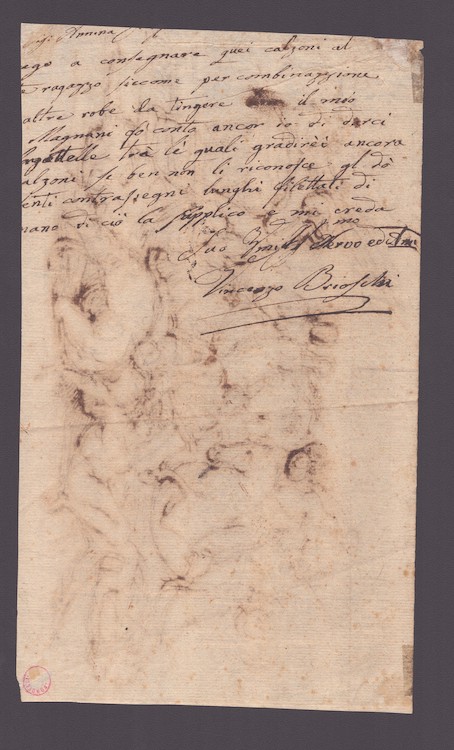 Annina
ego a consegnare quei calzoni al
ragazzo siccome per combinazzione
altre robe da tingere il mio
Magnani fò conto ancor io di darci
trà le quali gradirèi ancora
alzoni se ben non li riconosce gl dò
enti contrassegni lunghi filettati di
mano di ciò la supplico e mi creda
Suo Servo ed
Vincenzo Brioschi